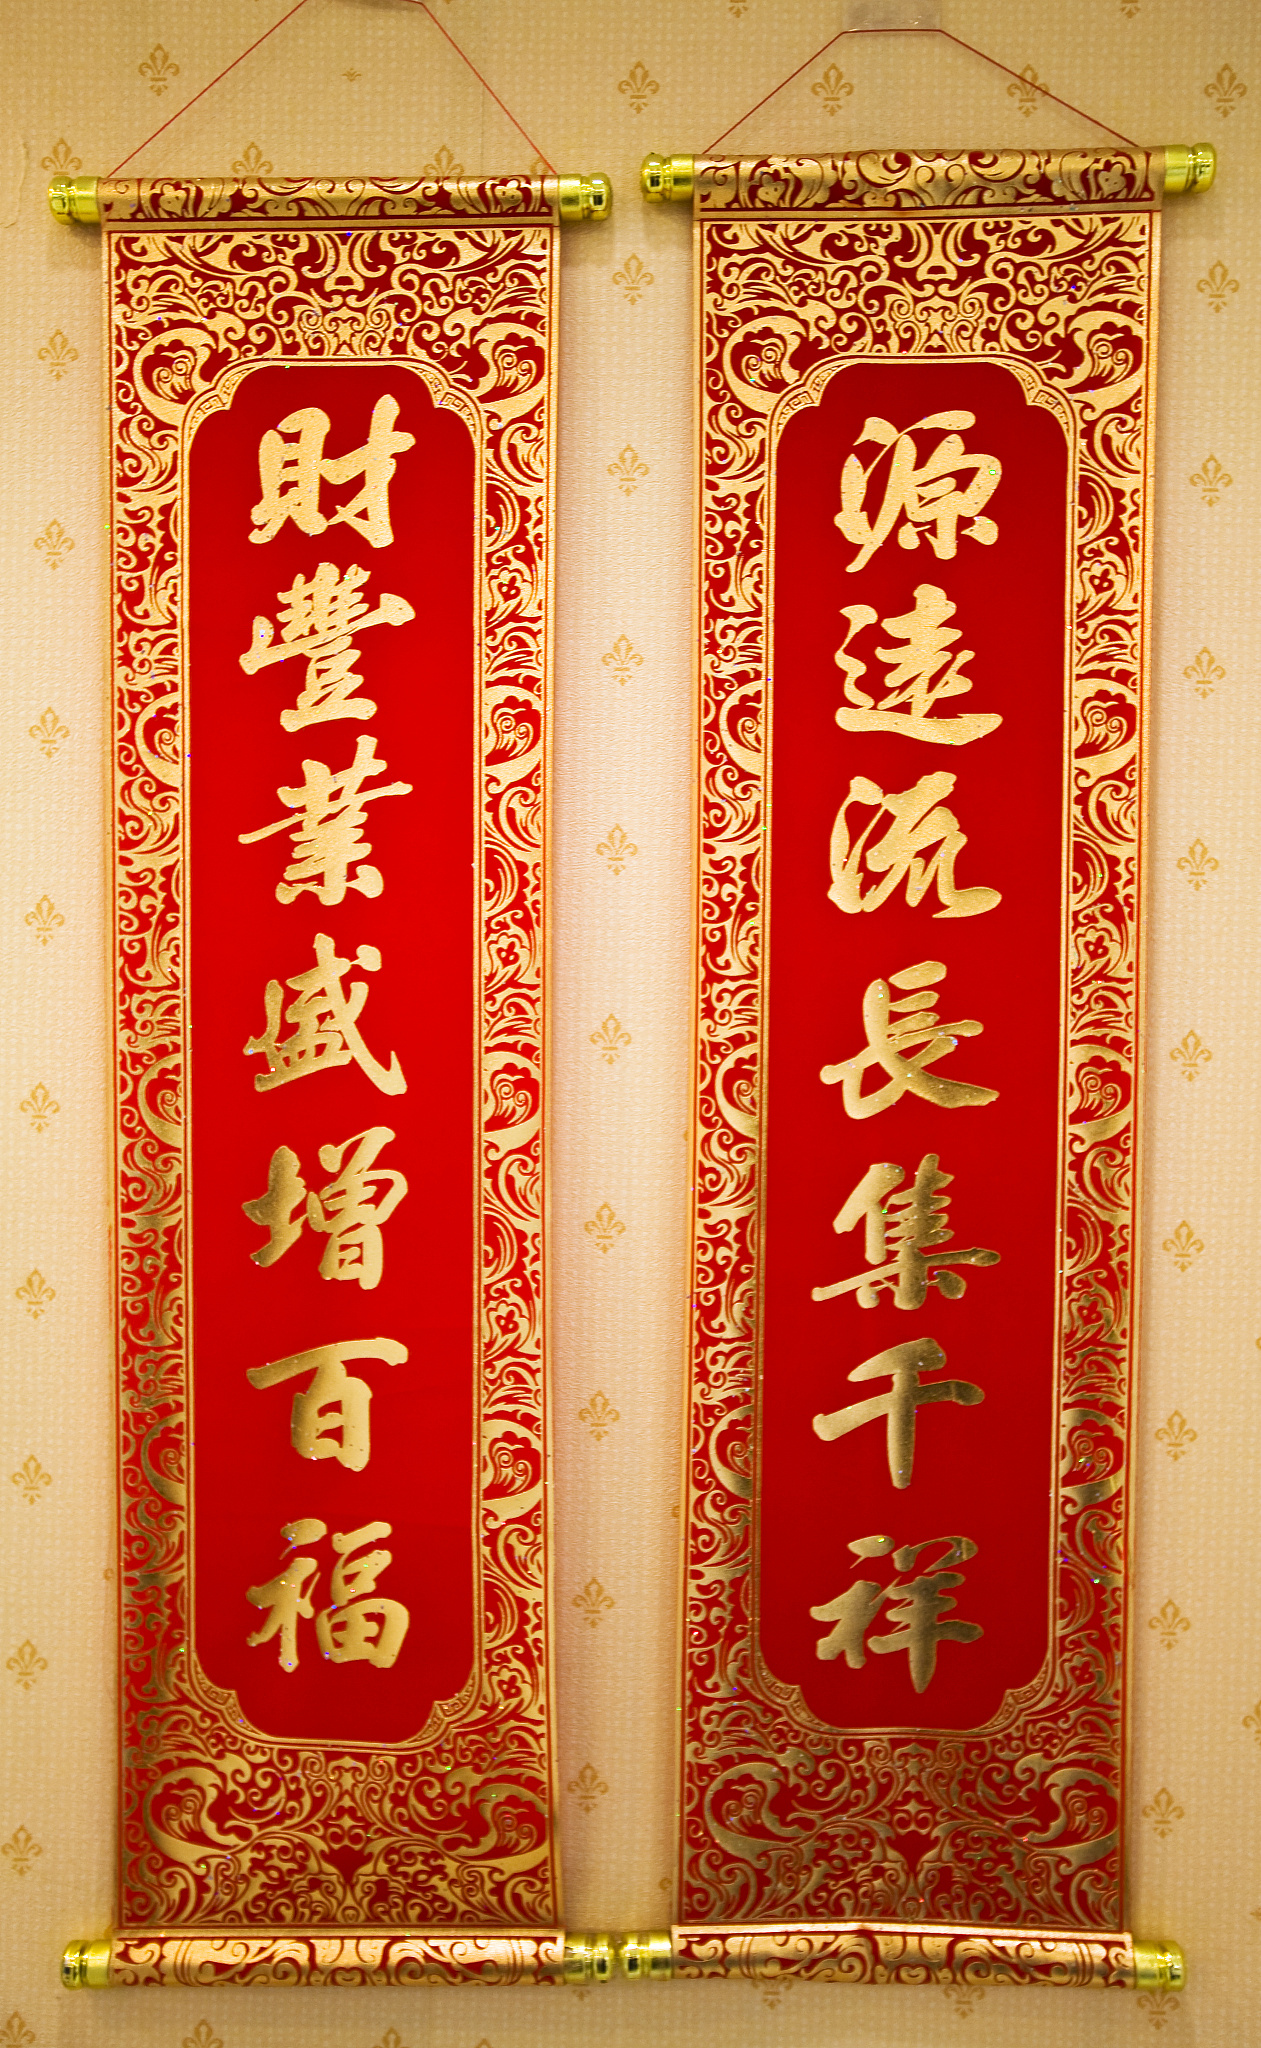 源遠流長集千祥
財豐業盛增百福